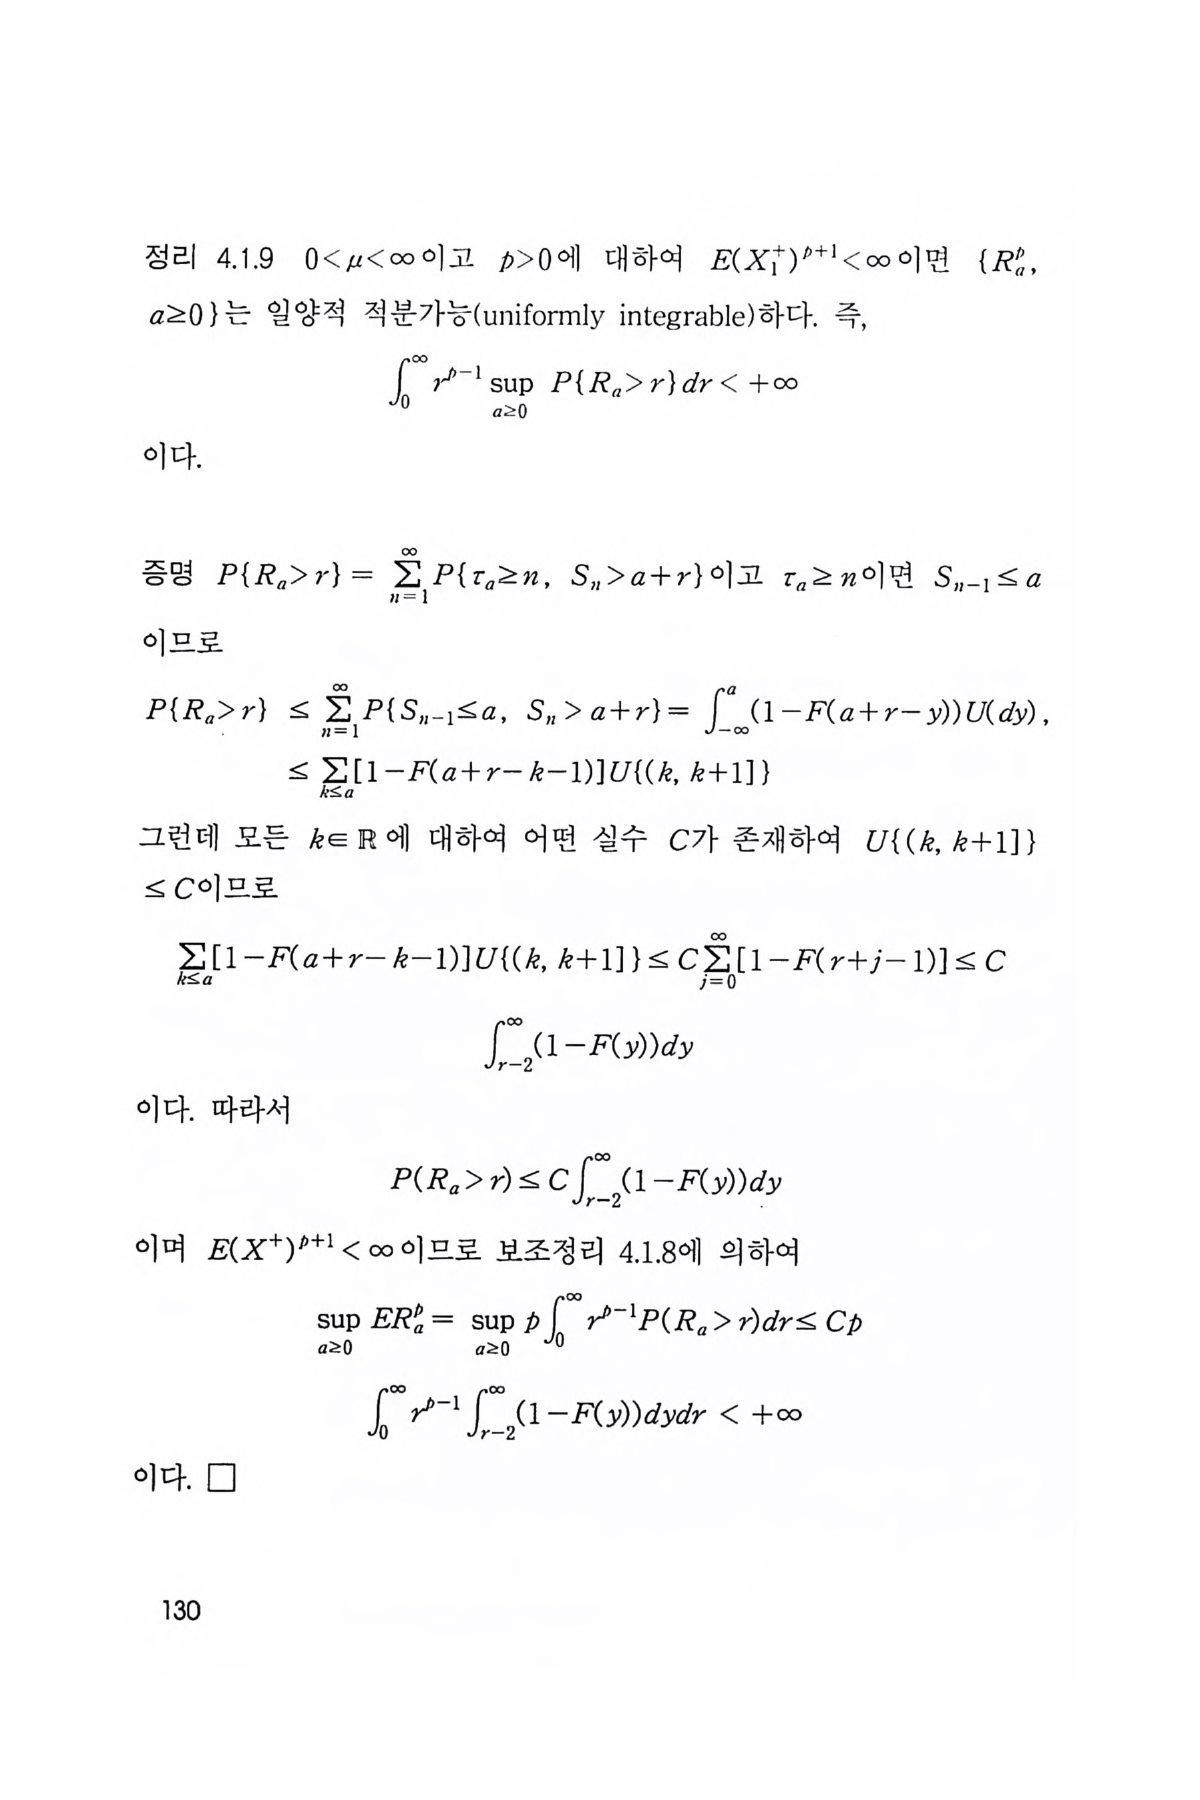 정리 4.1.9 0<μ<∞이고 p>0에 대하여 E(X₁⁺)ᵖ⁺¹<∞이면 {Rₐᵖ,
a≥0}는 일양적 적분가능(uniformly integrable)하다. 즉,
∫₀^∞ r^{p−1} sup_{a≥0} P{Rₐ>r}dr< +∞
이다.
증명 P{Rₐ>r}= ∑_{n=1}^∞ P{τₐ≥n, Sₙ>a+r}이고 τₐ≥n이면 S_{n−1}≤a
이므로
P{Rₐ>r} ≤ ∑_{n=1}^∞ P{S_{n−1}≤a, Sₙ>a+r}= ∫_{−∞}^a (1−F(a+r−y))U(dy),
≤ ∑_{k≤a}[1−F(a+r−k−1)]U{(k, k+1]}
그런데 모든 k∈ℝ에 대하여 어떤 실수 C가 존재하여 U{(k, k+1]}
≤C이므로
∑_{k≤a}[1−F(a+r−k−1)]U{(k, k+1]}≤C∑_{j=0}^∞[1−F(r+j−1)]≤C
∫_{r−2}^∞(1−F(y))dy
이다. 따라서
P(Rₐ>r)≤C∫_{r−2}^∞(1−F(y))dy
이며 E(X⁺)ᵖ⁺¹<∞이므로 보조정리 4.1.8에 의하여
sup_{a≥0} ERₐᵖ= sup_{a≥0} p∫₀^∞ r^{p−1}P(Rₐ>r)dr≤Cp
∫₀^∞ r^{p−1}∫_{r−2}^∞(1−F(y))dydr < +∞
이다. □
130